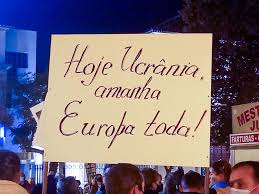 Hoje Ucrânia,
amanha
Europa toda!
MEST
JU
FARTURAS